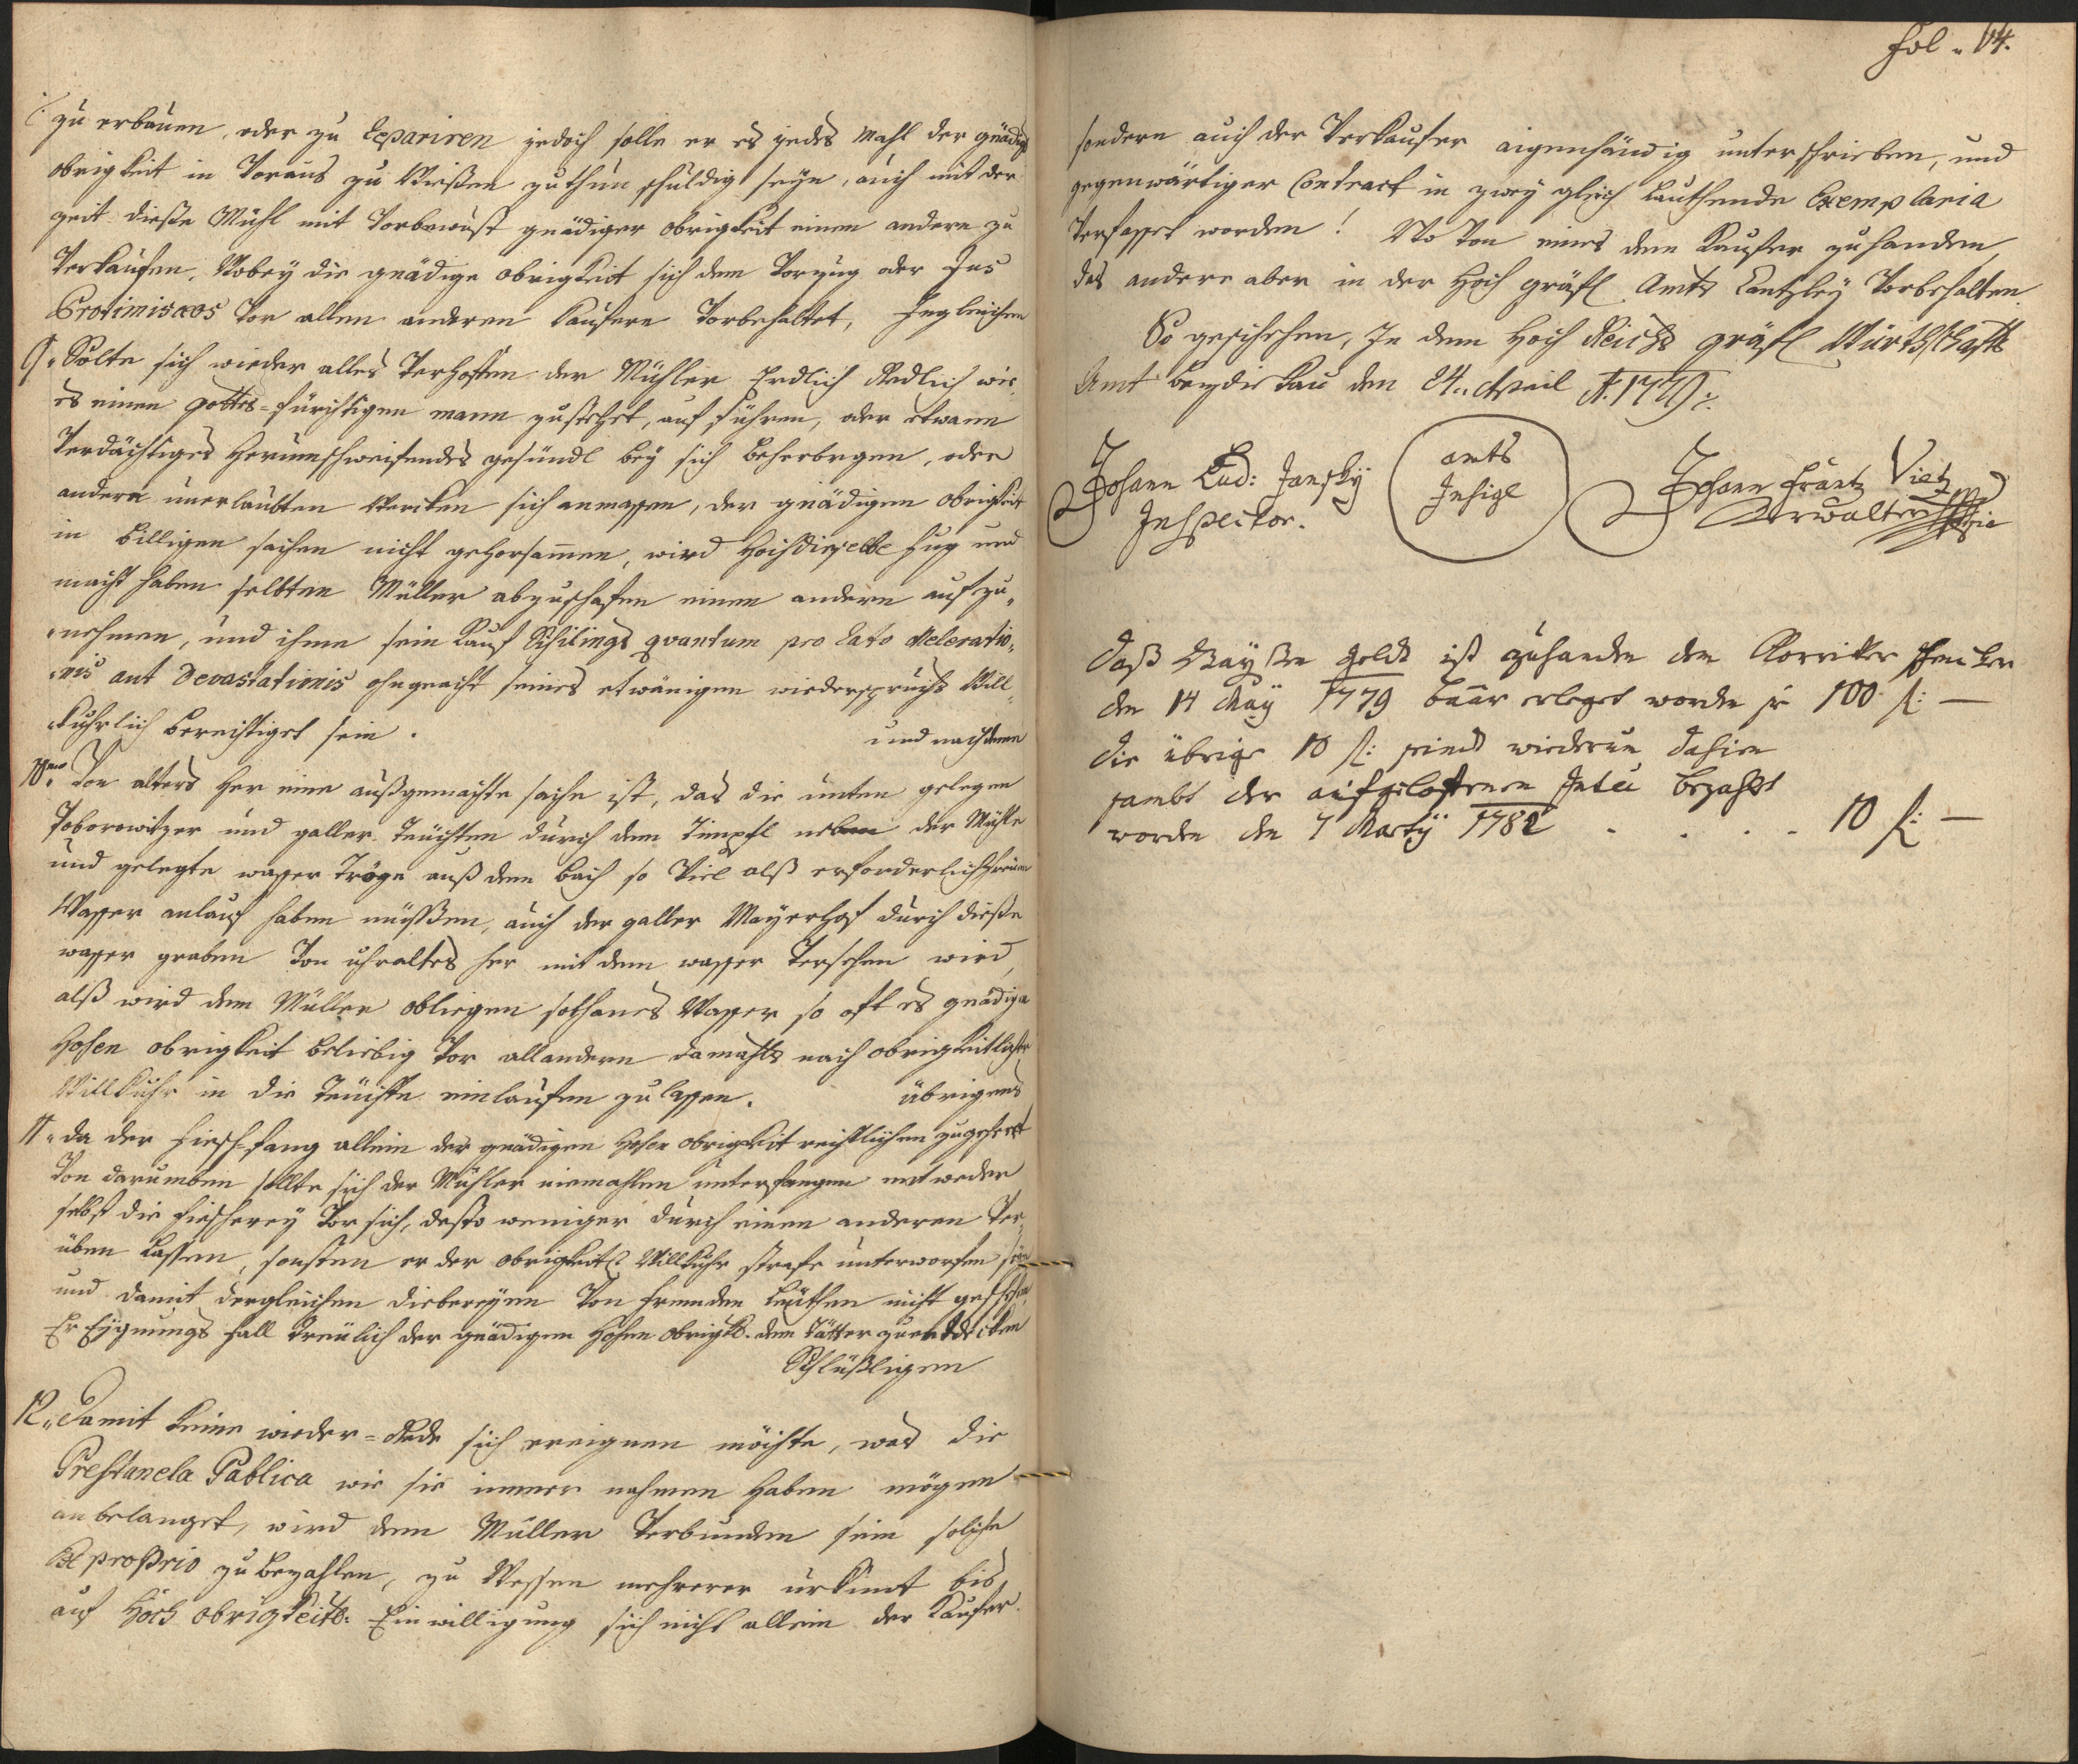 zu erbauen, oder zu Repariren jedoch solle er es jedes Mahl der gnädig
obrigkeit in Voraus zu Wissen zuthun schuldig seyn, auch mit der
zeit diesse Mühl mit Vorbewust gnädiger obrigkeit einen andern zu
Verkaufen, Wobey die gnädige obrigkeit sich dem Vorzug oder Jus
Protimiseos Vor allen anderen Kaufern Vorbehaltet, Ingleichen
9. Solte sich wieder alles Verhoffen der Mühler Erdlich Redlich wie
es einen gottes-fürchtigen mann zustehet, auf führen, oder etwann
Verdächtiges Herumschweifendes gesündl bey sich beherbrgen, oder
andern unerlaubten Wercken sich anmassen, der gnädigen obrigkeit
in billigen sachen nicht gehorsammen, wird Hochdieselbe fug und
macht haben selbten Müller abzuschaffen einen andern aufzu-
nehmen, und ihme sein Kauf Schilings quantum pro Rato Melioratio-
nis aut Devastationis ohngeacht seines etwanigen wiederspruchs Will-
kuhrlich berechtiget sein.
und nachdeme
10mo Von alters Her eine außgemachte sache ist, das die unten gelegen
Poborowitzer und galler Teüchten durch dem Timpfl neben der Mühle
und gelegte wasser Tröge auß dem bach so Viel alß erforderlich
Wasser anlauf haben müssen, auch der galler Mayerhof durch diesse
wasser graben Von uhraltes her mit dem wasser Versehen wird,
alß wird dem Müller obliegen sothanes Wasser so oft es gnädigen
Hohen obrigkeit beliebig Vor allandern damahls nach obrigkeitlicher
Willkuhr in die Teüchte einlaufen zu lassen.
übrigens
11. da der Fiesch-fang allein der gnädigen Hohen obrigkeit rechtlichen zugehert
Von darumben sollte sich der Mühler niemahlen unterfangen entweder
selbst die Fiescherey Vor sich, desto weniger durch einen anderen Ver-
üben lassen, sonsten er der obrigkeitl Willkuhr strafe unterworfen seyn
und damit dergleichen diebereyen Von fremden Leüthen nicht geschehen
Er Eygnungs fall treülich der gnädigen Hohen obrigk. den Tätter zuentdecken
Schlüsligen
12. Damit keine wieder-Rede sich ereignen möchte, was die
Prestanda Publica wie sie immer nahmen Haben mögen
anbelanget, wird dem Müller Verbunden sein solche
Ex proprio zu bezahlen, zu Wessen mehrerer urkunt bis
auf Hoch obrigkeitl. Einwilligung sich nicht allein der Kaufer
Fol. 64.
sondern auch der Verkaufer aigenhändig unterschrieben, und
gegenwärtiger Contract in zwey gleich lauthende Exemplaria
Verfasset worden! Wo Von eines dem Kaufer zuhanden
das andere aber in der Hoch gräfl Amts Cantzley Vorbehalten.
So geschehen, In dem Hoch Reichs gräfl Würthschafts
Amt den 24. April A. 1779
Johann Lud: Jansky
Inspector.
amts
Insigl
Johann Frantz Vietz
Verwalter
Daß Waysen geldt ist zuhanden dem
den 14 May 1779 baar erleget worden pr 100 fl: —
die übrige 10 fl: seind wiederum dahien
sambt der aufgelofenen bezahlt
worden den 7 Martÿ 1782 . . . . 10 fl: —